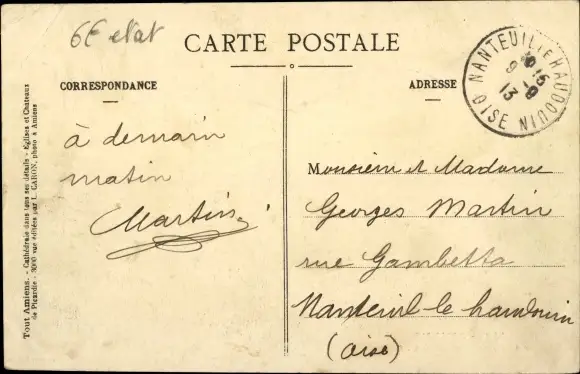 6€ etat
CARTE POSTALE
CORRESPONDANCE
ADRESSE
NANTEUIL LE HAUDOUIN
OISE
à demain
matin
Martin
Monsieur et Madame
Georges Martin
rue Gambetta
Nanteuil-le haudouin
(Oise)
Tout Amiens. - Cathédrale dans tous ses détails - Eglises et Chateaux
de Picardie - 3000 vues éditées par L. CARON, photo à Amiens